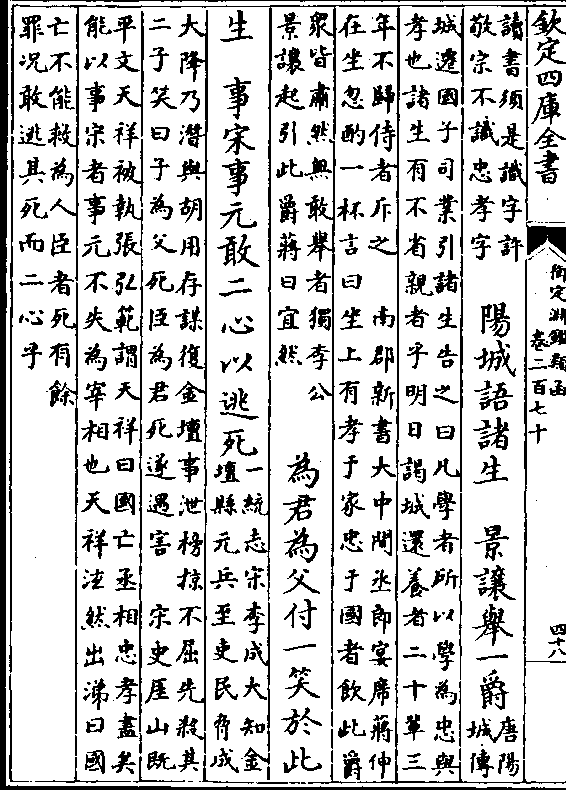 欽定四庫全書
御定淵鑑類函
卷二百七十
四十八
讀書須是識字許
敬宗不識忠孝字
陽城語諸生　景讓舉一爵
唐陽
城傳
城遷國子司業引諸生告之曰凡學者所以學為忠與
孝也諸生有不省親者乎明日謁城還養者二十輩三
年不歸侍者斥之　南郡新書大中間丞郎宴席蔣仲
在坐忽酌一杯言曰坐上有孝于家忠于國者飲此爵
眾皆肅然無敢舉者獨李公
景讓起引此爵蔣曰宜然
為君為父付一笑於此
生　事宋事元敢二心以逃死
一統志宋李成大知金
壇縣元兵至吏民脅成
大降乃潛與胡用存謀復金壇事泄榜掠不屈先殺其
二子笑曰子為父死臣為君死遂遇害　宋史厓山既
平文天祥被執張弘範謂天祥曰國亡丞相忠孝盡矣
能以事宋者事元不失為宰相也天祥泫然出涕曰國
亡不能救為人臣者死有餘
罪况敢逃其死而二心乎